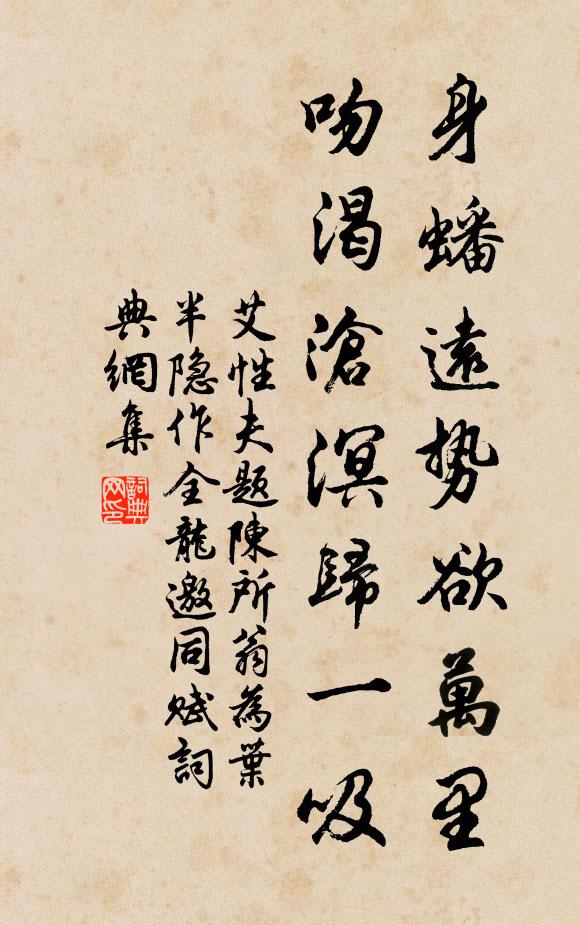 身蟠遠势欲萬里
吻渴滄溟歸一吸
艾性夫題陳所翁為葉
半隐作全龍邀同賦詞
典網集
詞典网印